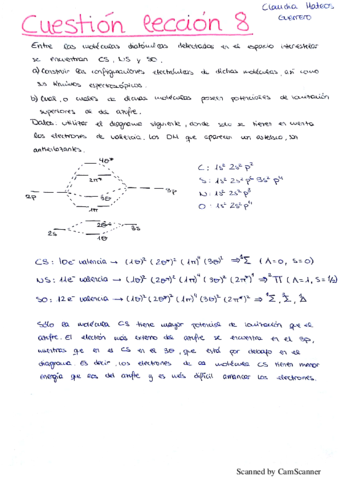 Claudia Mateos
Guerrero
Cuestión lección 8
Entre las moléculas diatómicas detectadas en el espacio interestelar
se encuentran CS, NS y SO.
a) Construir la configuraciones electrónicas de dichas moléculas, así como
sus términos espectroscópicos.
b) Cuál, o cuales de dichas moléculas poseen potenciales de ionización
superiores al del azufre.
Datos: utilizar el diagrama siguiente, donde solo se tienen en cuenta
los electrones de valencia, los OM que aparecen con asterisco, son
antienlazantes.
4σ*
2π*
3p
2p
3σ
1π
2σ*
3s
2s
1σ
C: 1s² 2s² p²
S: 1s² 2s² p⁶ 3s² p⁴
N: 1s² 2s² p³
O: 1s² 2s² p⁴
CS: 10 e⁻ valencia → (1σ)² (2σ*)² (1π)⁴ (3σ)² ⇒ ¹Σ (Λ=0, S=0)
NS: 11 e⁻ valencia → (1σ)² (2σ*)² (1π)⁴ (3σ)² (2π*)¹ ⇒ ²Π (Λ=1, S=1/2)
SO: 12 e⁻ valencia → (1σ)² (2σ*)² (1π)⁴ (3σ)² (2π*)² ⇒ ³Σ, ¹Σ, ¹Δ
Sólo la molécula CS tiene mayor potencial de ionización que el
azufre. El electrón más externo del azufre se encuentra en el 3p,
mientras que en el CS en el 3σ, que está por debajo en el
diagrama. Es decir, los electrones de la molécula CS tienen menor
energía que los del azufre y es más difícil arrancar los electrones.
Scanned by CamScanner